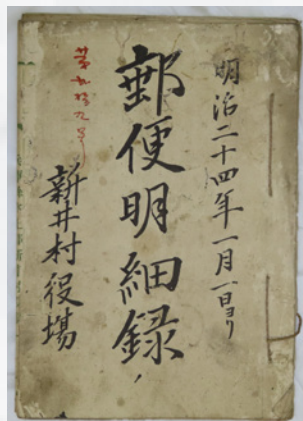 明治二十四年一月一日ヨリ
郵便明細録
第九拾九号
新井村役場